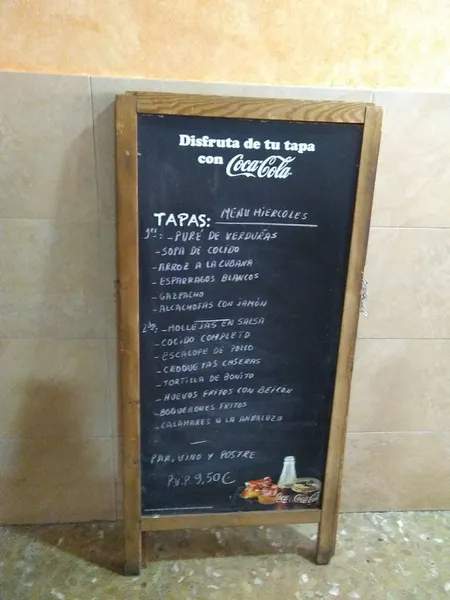 Disfruta de tu tapa
con Coca-Cola
TAPAS: MENU MIERCOLES
1os: - PURÉ DE VERDURAS
- SOPA DE COCIDO
- ARROZ A LA CUBANA
- ESPARRAGOS BLANCOS
- GAZPACHO
- ALCACHOFAS CON JAMÓN
2dos: - MOLLEJAS EN SALSA
- COCIDO COMPLETO
- ESCALOPE DE POLLO
- CROQUETAS CASERAS
- TORTILLA DE BONITO
- HUEVOS FRITOS CON BEICON
- BOQUERONES FRITOS
- CALAMARES A LA ANDALUZA
PAN, VINO Y POSTRE
P.V.P. 9,50€
Coca-Cola